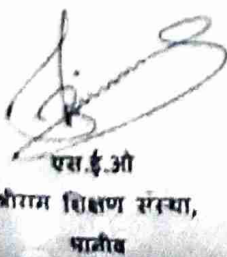 एस.ई.ओ
श्रीराम शिक्षण संस्था,
पानीव